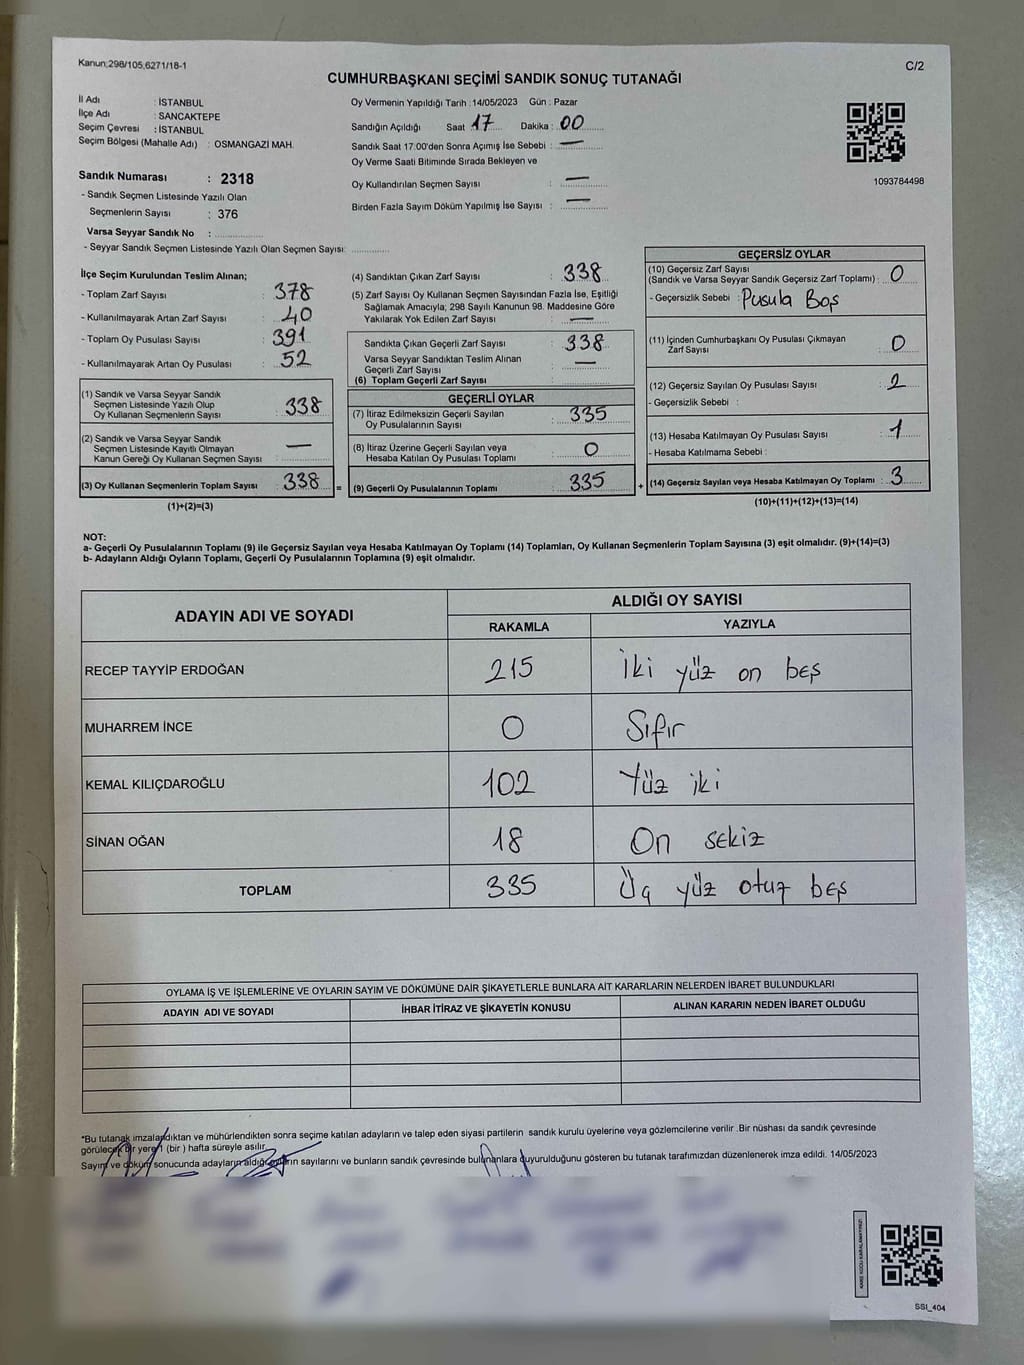 Kanun:298/105,6271/18-1
C/2
CUMHURBAŞKANI SEÇİMİ SANDIK SONUÇ TUTANAĞI
İl Adı : İSTANBUL
İlçe Adı : SANCAKTEPE
Seçim Çevresi : İSTANBUL
Seçim Bölgesi (Mahalle Adı) : OSMANGAZİ MAH.
Sandık Numarası : 2318
- Sandık Seçmen Listesinde Yazılı Olan
Seçmenlerin Sayısı : 376
Varsa Seyyar Sandık No :
- Seyyar Sandık Seçmen Listesinde Yazılı Olan Seçmen Sayısı:
Oy Vermenin Yapıldığı Tarih :14/05/2023 Gün : Pazar
Sandığın Açıldığı Saat 17 Dakika : 00
Sandık Saat 17:00'den Sonra Açımış İse Sebebi : —
Oy Verme Saati Bitiminde Sırada Bekleyen ve
Oy Kullandırılan Seçmen Sayısı : —
Birden Fazla Sayım Döküm Yapılmış İse Sayısı : —
1093784498
İlçe Seçim Kurulundan Teslim Alınan;
- Toplam Zarf Sayısı : 378
- Kullanılmayarak Artan Zarf Sayısı : 40
- Toplam Oy Pusulası Sayısı : 391
- Kullanılmayarak Artan Oy Pusulası : 52
(1) Sandık ve Varsa Seyyar Sandık
Seçmen Listesinde Yazılı Olup
Oy Kullanan Seçmenlerin Sayısı : 338
(2) Sandık ve Varsa Seyyar Sandık
Seçmen Listesinde Kayıtlı Olmayan
Kanun Gereği Oy Kullanan Seçmen Sayısı : —
(3) Oy Kullanan Seçmenlerin Toplam Sayısı : 338
(1)+(2)=(3)
(4) Sandıktan Çıkan Zarf Sayısı : 338
(5) Zarf Sayısı Oy Kullanan Seçmen Sayısından Fazla İse, Eşitliği
Sağlamak Amacıyla; 298 Sayılı Kanunun 98. Maddesine Göre
Yakılarak Yok Edilen Zarf Sayısı : —
Sandıkta Çıkan Geçerli Zarf Sayısı : 338
Varsa Seyyar Sandıktan Teslim Alınan
Geçerli Zarf Sayısı : —
(6) Toplam Geçerli Zarf Sayısı :
GEÇERLİ OYLAR
(7) İtiraz Edilmeksizin Geçerli Sayılan
Oy Pusulalarının Sayısı : 335
(8) İtiraz Üzerine Geçerli Sayılan veya
Hesaba Katılan Oy Pusulası Toplamı : 0
= (9) Geçerli Oy Pusulalarının Toplamı : 335 +
GEÇERSİZ OYLAR
(10) Geçersiz Zarf Sayısı
(Sandık ve Varsa Seyyar Sandık Geçersiz Zarf Toplamı) : 0
- Geçersizlik Sebebi : Pusula Boş
(11) İçinden Cumhurbaşkanı Oy Pusulası Çıkmayan
Zarf Sayısı : 0
(12) Geçersiz Sayılan Oy Pusulası Sayısı : 2
- Geçersizlik Sebebi :
(13) Hesaba Katılmayan Oy Pusulası Sayısı : 1
- Hesaba Katılmama Sebebi :
(14) Geçersiz Sayılan veya Hesaba Katılmayan Oy Toplamı : 3
(10)+(11)+(12)+(13)=(14)
NOT:
a- Geçerli Oy Pusulalarının Toplamı (9) ile Geçersiz Sayılan veya Hesaba Katılmayan Oy Toplamı (14) Toplamları, Oy Kullanan Seçmenlerin Toplam Sayısına (3) eşit olmalıdır. (9)+(14)=(3)
b- Adayların Aldığı Oyların Toplamı, Geçerli Oy Pusulalarının Toplamına (9) eşit olmalıdır.
ADAYIN ADI VE SOYADI
ALDIĞI OY SAYISI
RAKAMLA YAZIYLA
RECEP TAYYİP ERDOĞAN 215 İki yüz on beş
MUHARREM İNCE 0 Sıfır
KEMAL KILIÇDAROĞLU 102 Yüz iki
SİNAN OĞAN 18 On sekiz
TOPLAM 335 Üç yüz otuz beş
OYLAMA İŞ VE İŞLEMLERİNE VE OYLARIN SAYIM VE DÖKÜMÜNE DAİR ŞİKAYETLERLE BUNLARA AİT KARARLARIN NELERDEN İBARET BULUNDUKLARI
ADAYIN ADI VE SOYADI İHBAR İTİRAZ VE ŞİKAYETİN KONUSU ALINAN KARARIN NEDEN İBARET OLDUĞU
*Bu tutanak imzalandıktan ve mühürlendikten sonra seçime katılan adayların ve talep eden siyasi partilerin sandık kurulu üyelerine veya gözlemcilerine verilir .Bir nüshası da sandık çevresinde
görülecek bir yere 1 (bir ) hafta süreyle asılır.
Sayım ve döküm sonucunda adayların aldığı oyların sayılarını ve bunların sandık çevresinde bulunanlara duyurulduğunu gösteren bu tutanak tarafımızdan düzenlenerek imza edildi. 14/05/2023
KARE KODU KARALAMAYINIZ!
SSI_404